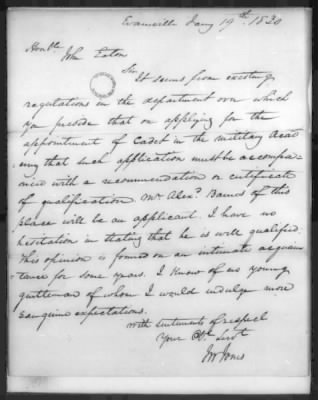 Evansville Jany 19th. 1830
Honble.
John Eaton
Sir
It seems from existing
regulations in the department over which
you preside that on applying for the
appointment of Cadet in the military Acad
emy that such application must be accompa-
nied with a recommendation or certificate
of qualification. Mr Alexd. of this
place will be an applicant. I have no
hesitation in stating that he is well qualified.
This opinion is formed on an intimate acquain
tance for some years. I know of no young
gentleman of whom I would indulge more
sanguine expectations.
With sentiments of respect
Your Obt. Servt
Jones